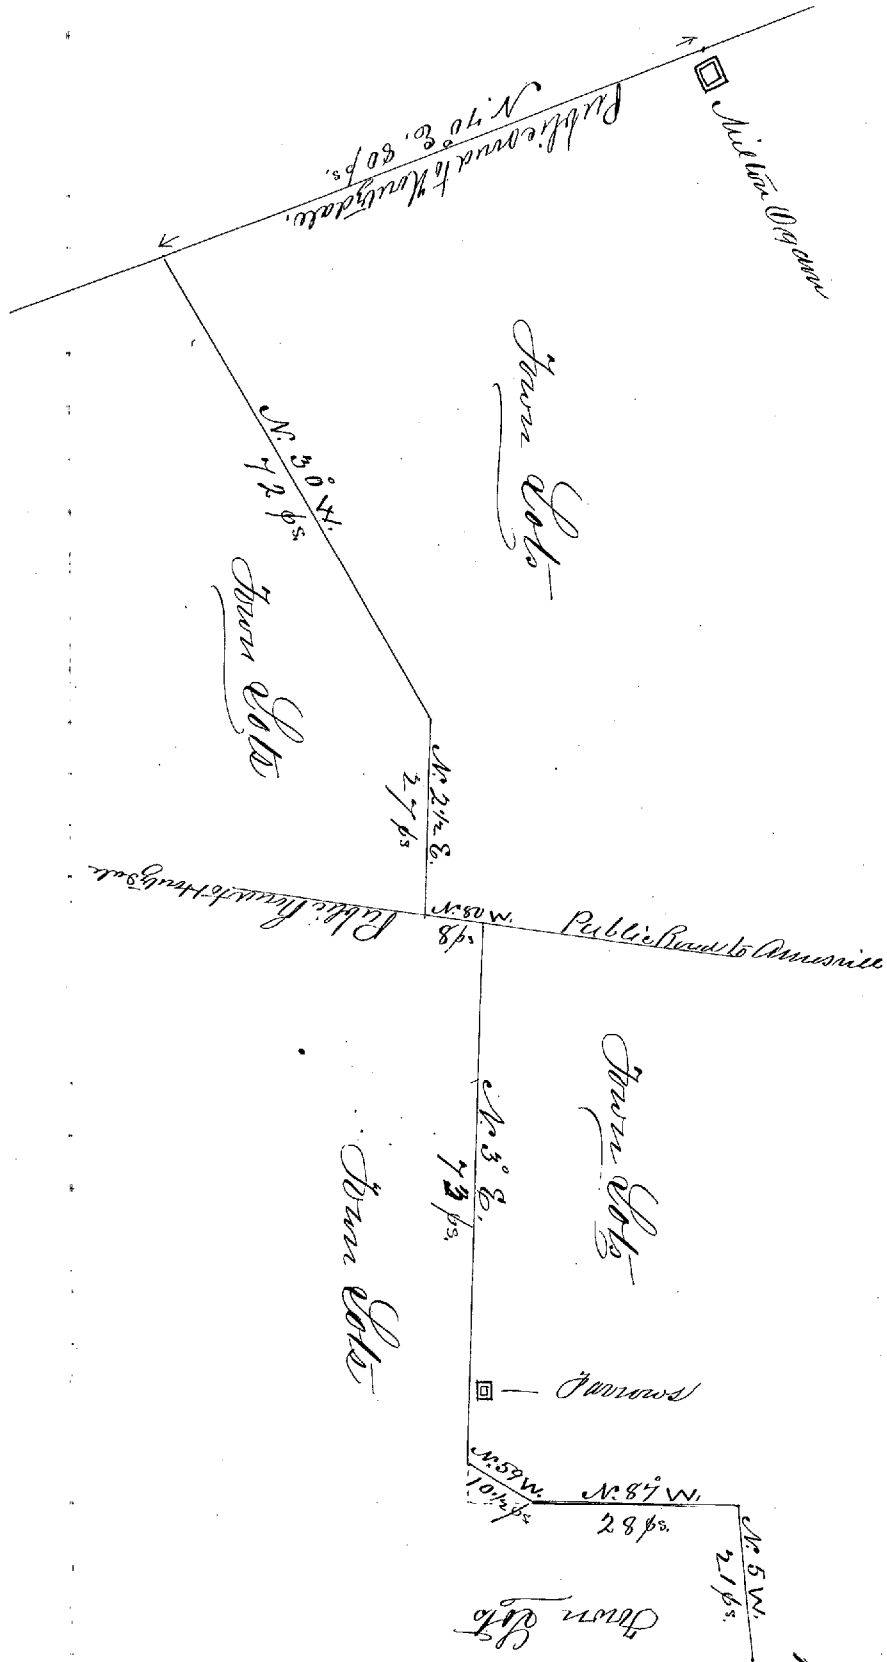 Milton
Public road to Houtzdale.
N. 70° E. 80 ps.
Town Lots
N. 30 W.
72 ps
Town Lots
N. 2 1/2 E.
27 ps
Public Road to Houtzdale
N 80 W.
8 ps
Public Road to
Town Lots
N. 3° E.
73 ps.
Town Lots
Farrows
N 59 W.
10 1/2 ps
N. 87 W.
28 ps.
N. 5 W.
21 ps.
Town Lots